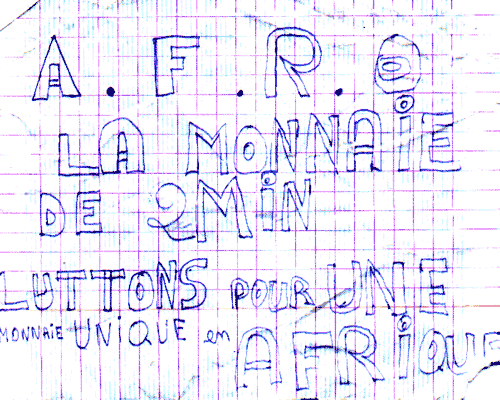 A.F.R.O
LA MONNAiE
DE 2MiN
LUTTONS POUR UNE
MONNAiE UNiQUE en AFRiQUE